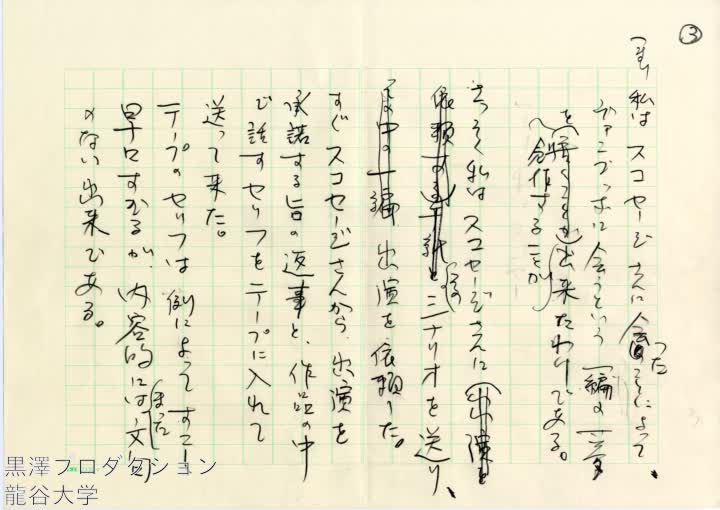 ③
私はスコセージさんに会った
ヴァン・ゴッホに会うという一編の
創作することが出来たわけである。
さっそく私はスコセージさんに
そのシナリオを送り、
出演を依頼した。
すぐスコセージさんから、出演を
承諾する旨の返事と、作品の中
で話すセリフをテープに入れて
送って来た。
テープのセリフは例によってすこし
早口すぎるが、内容的にはまったく文句
のない出来である。
黒澤プロダクション
龍谷大学